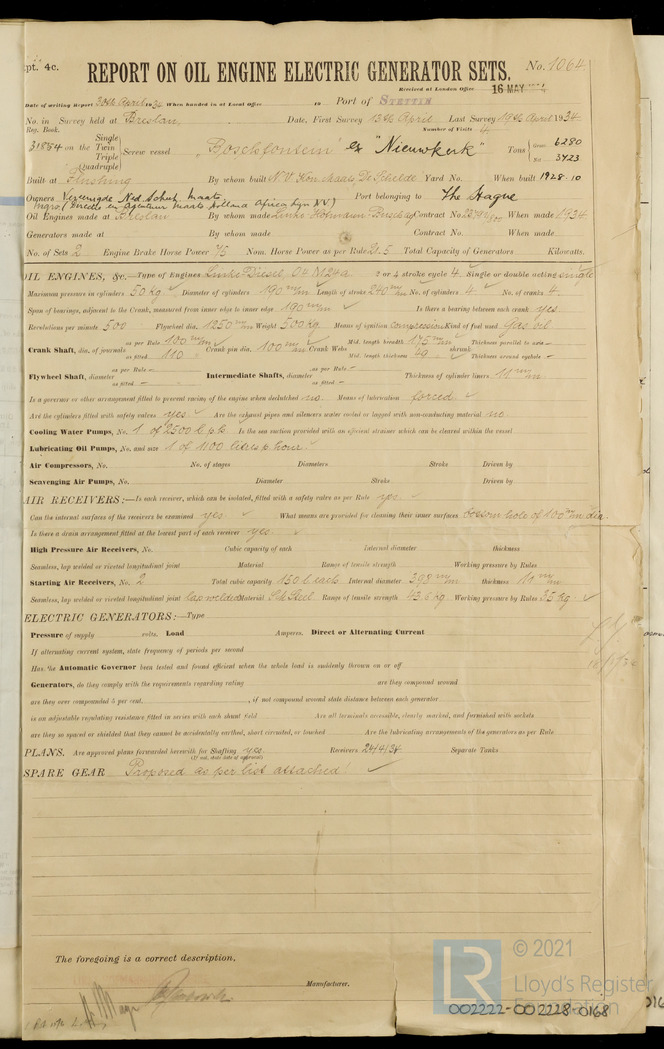 pt. 4c.
REPORT ON OIL ENGINE ELECTRIC GENERATOR SETS.
No. 1064
Received at London Office 16 MAY
Date of writing Report 30th April 1934 When handed in at Local Office 19 Port of STETTIN
No. in Survey held at Breslau, Date, First Survey 13th April Last Survey 19th April 1934
Reg. Book. Number of Visits 4
31884 on the Single Twin Triple Quadruple Screw vessel "Boschfontein" ex "Nieuwkerk" Tons Gross 6280 Net 3423
Built at Flushing By whom built N.V. Kon. Maats. De Schelde Yard No. When built 1928-10
Owners Vereenigde Ned. Schvt. Maats. Port belonging to The Hague
Oil Engines made at Breslau By whom made Linke Hofmann Busch Contract No. When made 1934
Generators made at By whom made Contract No. When made
No. of Sets 2 Engine Brake Horse Power 75 Nom. Horse Power as per Rule 21.5 Total Capacity of Generators Kilowatts.
OIL ENGINES, &c.—Type of Engines Linke Diesel 2 or 4 stroke cycle 4 Single or double acting single
Maximum pressure in cylinders 50 kg Diameter of cylinders 190 m/m Length of stroke 240 m/m No. of cylinders 4 No. of cranks 4
Span of bearings, adjacent to the Crank, measured from inner edge to inner edge 190 m/m Is there a bearing between each crank yes.
Revolutions per minute 500 Flywheel dia. 1250 m/m Weight 500 kg Means of ignition compression Kind of fuel used gas oil
Crank Shaft, dia. of journals as per Rule 100 m/m as fitted 110 Crank pin dia. 100 m/m Crank Webs Mid. length breadth 175 m/m Mid. length thickness 49 shrunk Thickness parallel to axis – Thickness around eyehole –
Flywheel Shaft, diameter as per Rule – as fitted – Intermediate Shafts, diameter as per Rule – as fitted – Thickness of cylinder liners 11 m/m
Is a governor or other arrangement fitted to prevent racing of the engine when declutched no. Means of lubrication forced
Are the cylinders fitted with safety valves yes Are the exhaust pipes and silencers water cooled or lagged with non-conducting material no.
Cooling Water Pumps, No. 1 of 2500 l p h. Is the sea suction provided with an efficient strainer which can be cleared within the vessel
Lubricating Oil Pumps, No. and size 1 of 1100 litres p hour.
Air Compressors, No. No. of stages Diameters Stroke Driven by
Scavenging Air Pumps, No. Diameter Stroke Driven by
AIR RECEIVERS:—Is each receiver, which can be isolated, fitted with a safety valve as per Rule yes.
Can the internal surfaces of the receivers be examined yes What means are provided for cleaning their inner surfaces hole of 100 m/m dia.
Is there a drain arrangement fitted at the lowest part of each receiver yes.
High Pressure Air Receivers, No. Cubic capacity of each Internal diameter thickness
Seamless, lap welded or riveted longitudinal joint Material Range of tensile strength Working pressure by Rules
Starting Air Receivers, No. 2 Total cubic capacity 150 l each Internal diameter 390 m/m thickness 10 m/m
Seamless, lap welded or riveted longitudinal joint lap welded Material S.M. Steel Range of tensile strength 43.6 kg Working pressure by Rules 35 kg
ELECTRIC GENERATORS:—Type
Pressure of supply volts. Load Amperes. Direct or Alternating Current
If alternating current system, state frequency of periods per second
Has the Automatic Governor been tested and found efficient when the whole load is suddenly thrown on or off
Generators, do they comply with the requirements regarding rating are they compound wound
are they over compounded 5 per cent. , if not compound wound state distance between each generator
is an adjustable regulating resistance fitted in series with each shunt field Are all terminals accessible, clearly marked, and furnished with sockets
are they so spaced or shielded that they cannot be accidentally earthed, short circuited, or touched Are the lubricating arrangements of the generators as per Rule
PLANS. Are approved plans forwarded herewith for Shafting yes. Receivers 24/4/34 Separate Tanks
(If not, state date of approval)
SPARE GEAR Proposed as per list attached!
The foregoing is a correct description.
Manufacturer.
© 2021
Lloyd's Register
Foundation
LR
002222-002228-0168